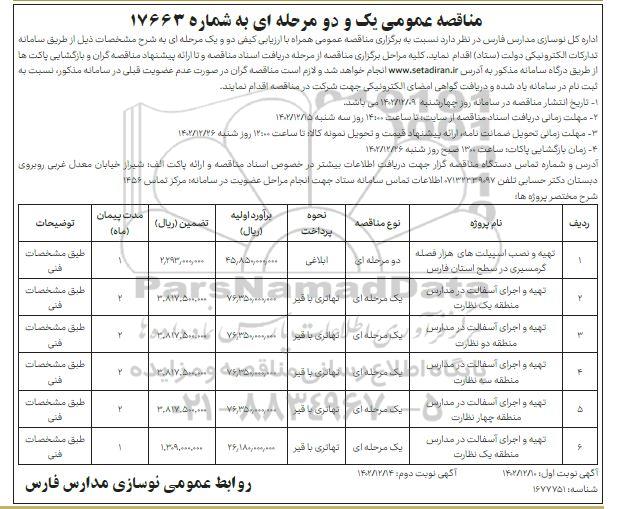 مناقصه عمومی یک و دو مرحله ای به شماره ۱۷۶۶۳
اداره کل نوسازی مدارس فارس در نظر دارد نسبت به برگزاری مناقصه عمومی همراه با ارزیابی کیفی دو و یک مرحله ای به شرح مشخصات ذیل از طریق سامانه
تدارکات الکترونیکی دولت (ستاد) اقدام نماید. کلیه مراحل برگزاری مناقصه از مرحله دریافت اسناد مناقصه و تا ارائه پیشنهاد مناقصه گران و بازگشایی پاکت ها
از طریق درگاه سامانه مذکور به آدرس www.setadiran.ir انجام خواهد شد و لازم است مناقصه گران در صورت عدم عضویت قبلی در سامانه مذکور، نسبت به
ثبت نام در سامانه یاد شده و دریافت گواهی امضای الکترونیکی جهت شرکت در مناقصه اقدام نمایند.
۱- تاریخ انتشار مناقصه در سامانه روز چهارشنبه ۱۴۰۲/۱۲/۰۹ می باشد.
۲- مهلت زمانی دریافت اسناد مناقصه از سایت: تا ساعت ۱۴:۰۰ روز سه شنبه ۱۴۰۲/۱۲/۱۵
۳- مهلت زمانی تحویل ضمانت نامه، ارائه پیشنهاد قیمت و تحویل نمونه کالا: تا ساعت ۱۲:۰۰ روز شنبه ۱۴۰۲/۱۲/۲۶
۴- زمان بازگشایی پاکات: ساعت ۱۳:۰۰ صبح روز شنبه ۱۴۰۲/۱۲/۲۶
آدرس و شماره تماس دستگاه مناقصه گزار جهت دریافت اطلاعات بیشتر در خصوص اسناد مناقصه و ارائه پاکت الف: شیراز خیابان معدل غربی روبروی
دبستان دکتر حسابی تلفن ۰۷۱۳۲۳۳۹۰۹۷ اطلاعات تماس سامانه ستاد جهت انجام مراحل عضویت در سامانه: مرکز تماس ۱۴۵۶
شرح مختصر پروژه ها:
ردیف نام پروژه نوع مناقصه نحوه پرداخت برآورد اولیه (ریال) تضمین (ریال) مدت پیمان (ماه) توضیحات
۱ تهیه و نصب اسپیلت های هزار فصله گرمسیری در سطح استان فارس دو مرحله ای ابلاغی ۴۵,۸۵۰,۰۰۰,۰۰۰ ۲,۲۹۳,۰۰۰,۰۰۰ ۱ طبق مشخصات فنی
۲ تهیه و اجرای آسفالت در مدارس منطقه یک نظارت یک مرحله ای تهاتری با قیر ۷۶,۳۵۰,۰۰۰,۰۰۰ ۳,۸۱۷,۵۰۰,۰۰۰ ۲ طبق مشخصات فنی
۳ تهیه و اجرای آسفالت در مدارس منطقه دو نظارت یک مرحله ای تهاتری با قیر ۷۶,۳۵۰,۰۰۰,۰۰۰ ۳,۸۱۷,۵۰۰,۰۰۰ ۲ طبق مشخصات فنی
۴ تهیه و اجرای آسفالت در مدارس منطقه سه نظارت یک مرحله ای تهاتری با قیر ۷۶,۳۵۰,۰۰۰,۰۰۰ ۳,۸۱۷,۵۰۰,۰۰۰ ۲ طبق مشخصات فنی
۵ تهیه و اجرای آسفالت در مدارس منطقه چهار نظارت یک مرحله ای تهاتری با قیر ۷۶,۳۵۰,۰۰۰,۰۰۰ ۳,۸۱۷,۵۰۰,۰۰۰ ۲ طبق مشخصات فنی
۶ تهیه و اجرای آسفالت در مدارس منطقه یک نظارت یک مرحله ای تهاتری با قیر ۲۶,۱۸۰,۰۰۰,۰۰۰ ۱,۳۰۹,۰۰۰,۰۰۰ ۱ طبق مشخصات فنی
آگهی نوبت اول: ۱۴۰۲/۱۲/۱۰ آگهی نوبت دوم: ۱۴۰۲/۱۲/۱۴
شناسه: ۱۶۷۷۷۵۱
روابط عمومی نوسازی مدارس فارس
ParsNamadData
پایگاه اطلاع رسانی مناقصه و مزایده
۰۲۱-۸۸۳۴۹۶۷۰-۵